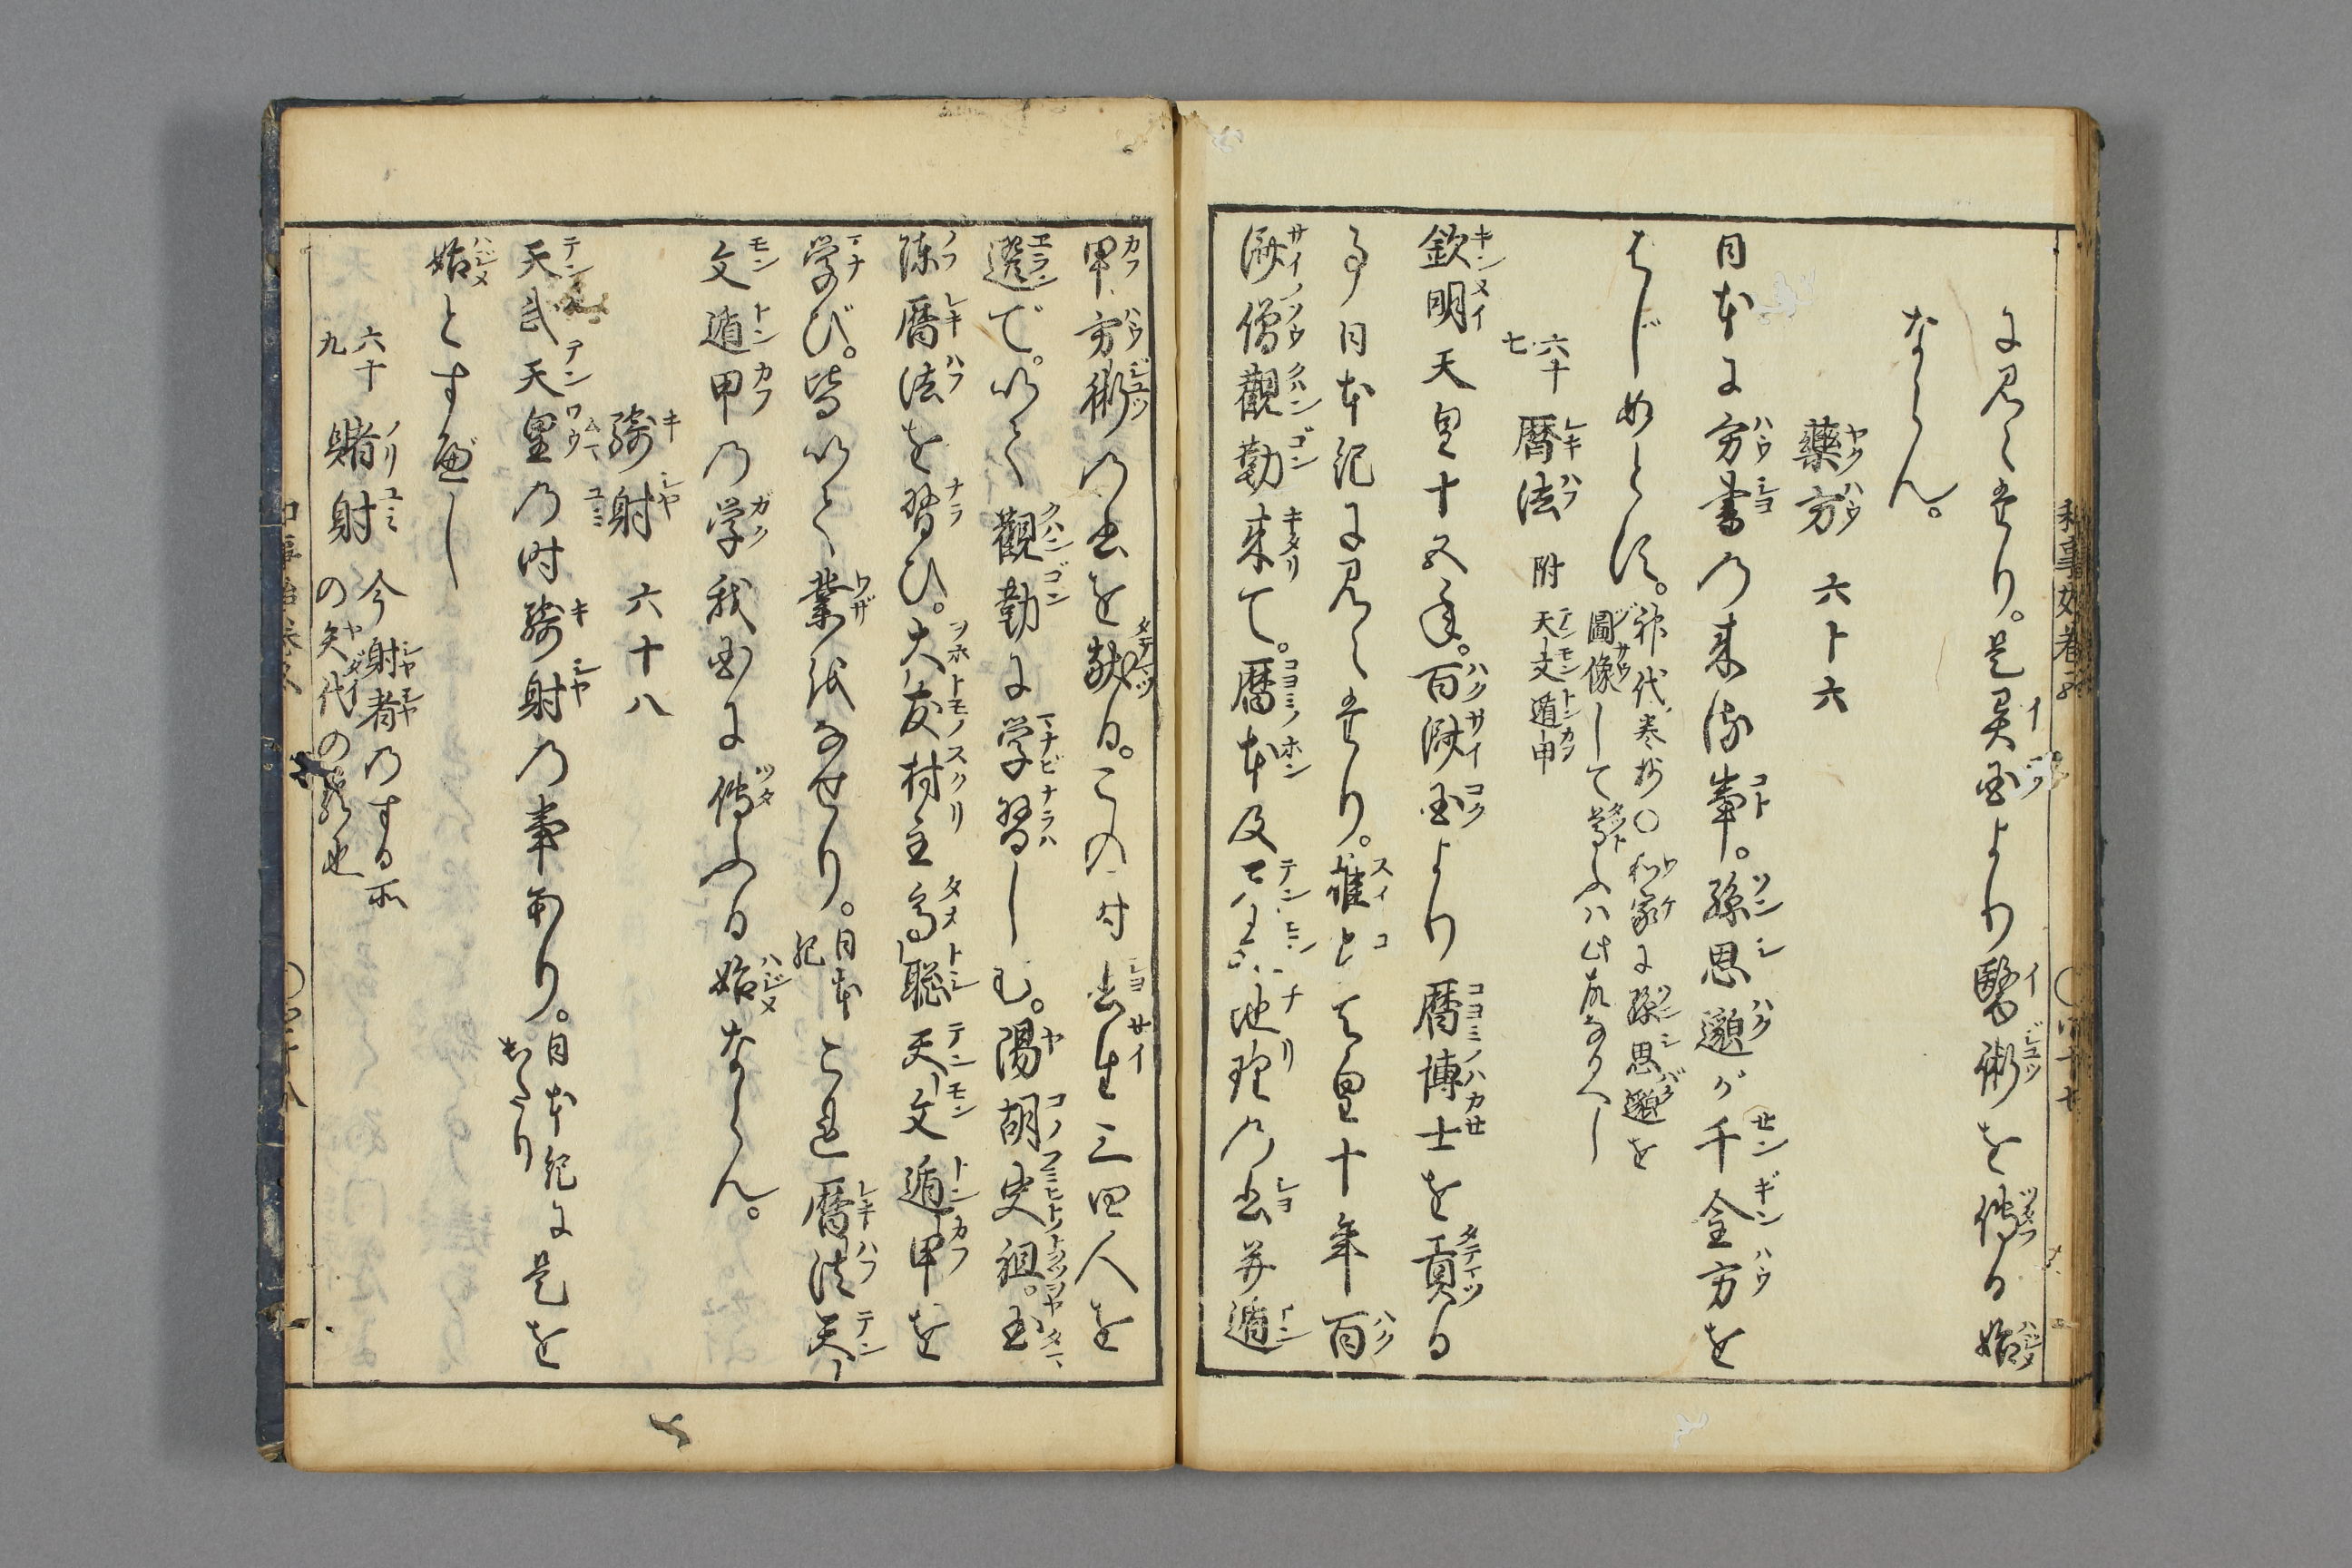 に見えたり。是異国より醫術を傳る始
ならん。
藥方 六十六
日本に方書の来る事。孫思邈が千金方を
はじめとす。神代巻抄〇和家に孫思邈を
圖像して尊ふハ此故なるべし
六十七 暦法 附 天文遁甲
欽明天皇十五年。百済国より暦博士を貢る
事日本紀に見えたり。推古天皇十年百
済僧觀勒来て。暦本及天文地理の書并遁
甲方術の書を献る。この時書生三四人を
選で。以て觀勒に学習しむ。陽胡史祖。玉
陳暦法を習ひ。大友村主高聡天文遁甲を
学び。皆以て業を成せり。日本紀 これ暦法天
文遁甲の学我国に傳ふる始ならん。
騎射 六十八
天武天皇の时騎射の事あり。日本紀に是を
始とすべし
六十九 賭射 今射者のする所
の矢代の類也
和事始巻之